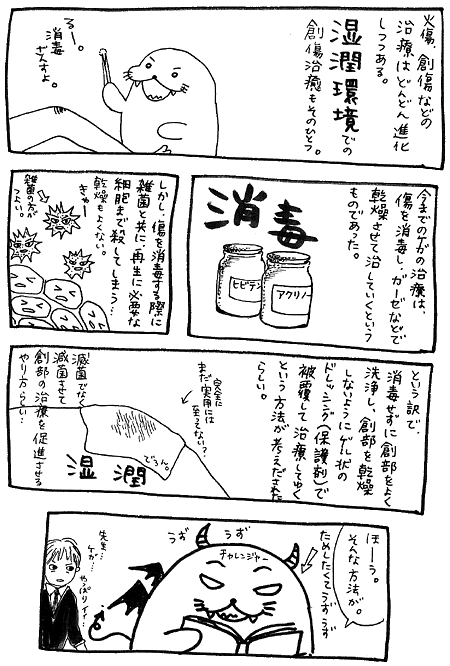 火傷、創傷などの
治療はどんどん進化
しつつある。
湿潤環境での
創傷治癒もそのひとつ。
るー。
消毒
ざんすよ。
今までの方の治療は、
傷を消毒し、ガーゼなどで
乾燥させて治していくという
ものであった。
消毒
ヒビテン
アクリノー
しかし、傷を消毒する際に
雑菌と共に、再生に必要な
細胞まで殺してしまう…
乾燥もよくない。
きゃー
雑菌の方が
つよい。
という訳で、
消毒せずに創部をよく
洗浄し、創部を乾燥
しないようにゲル状の
ドレッシング(保護剤)で
被覆して治療してゆく
という方法が考えだされた
らしい。
完全に
まだ実用には
至ってない?
でろん。
湿潤
滅菌でなく
減菌させて
創部の治療を促進させる
やり方らしい…
ほーう。
そんな方法が。
ためしたくてうずうず
うず
うず
チャレンジャー
先生…
ケガ…
やっぱりイイ…